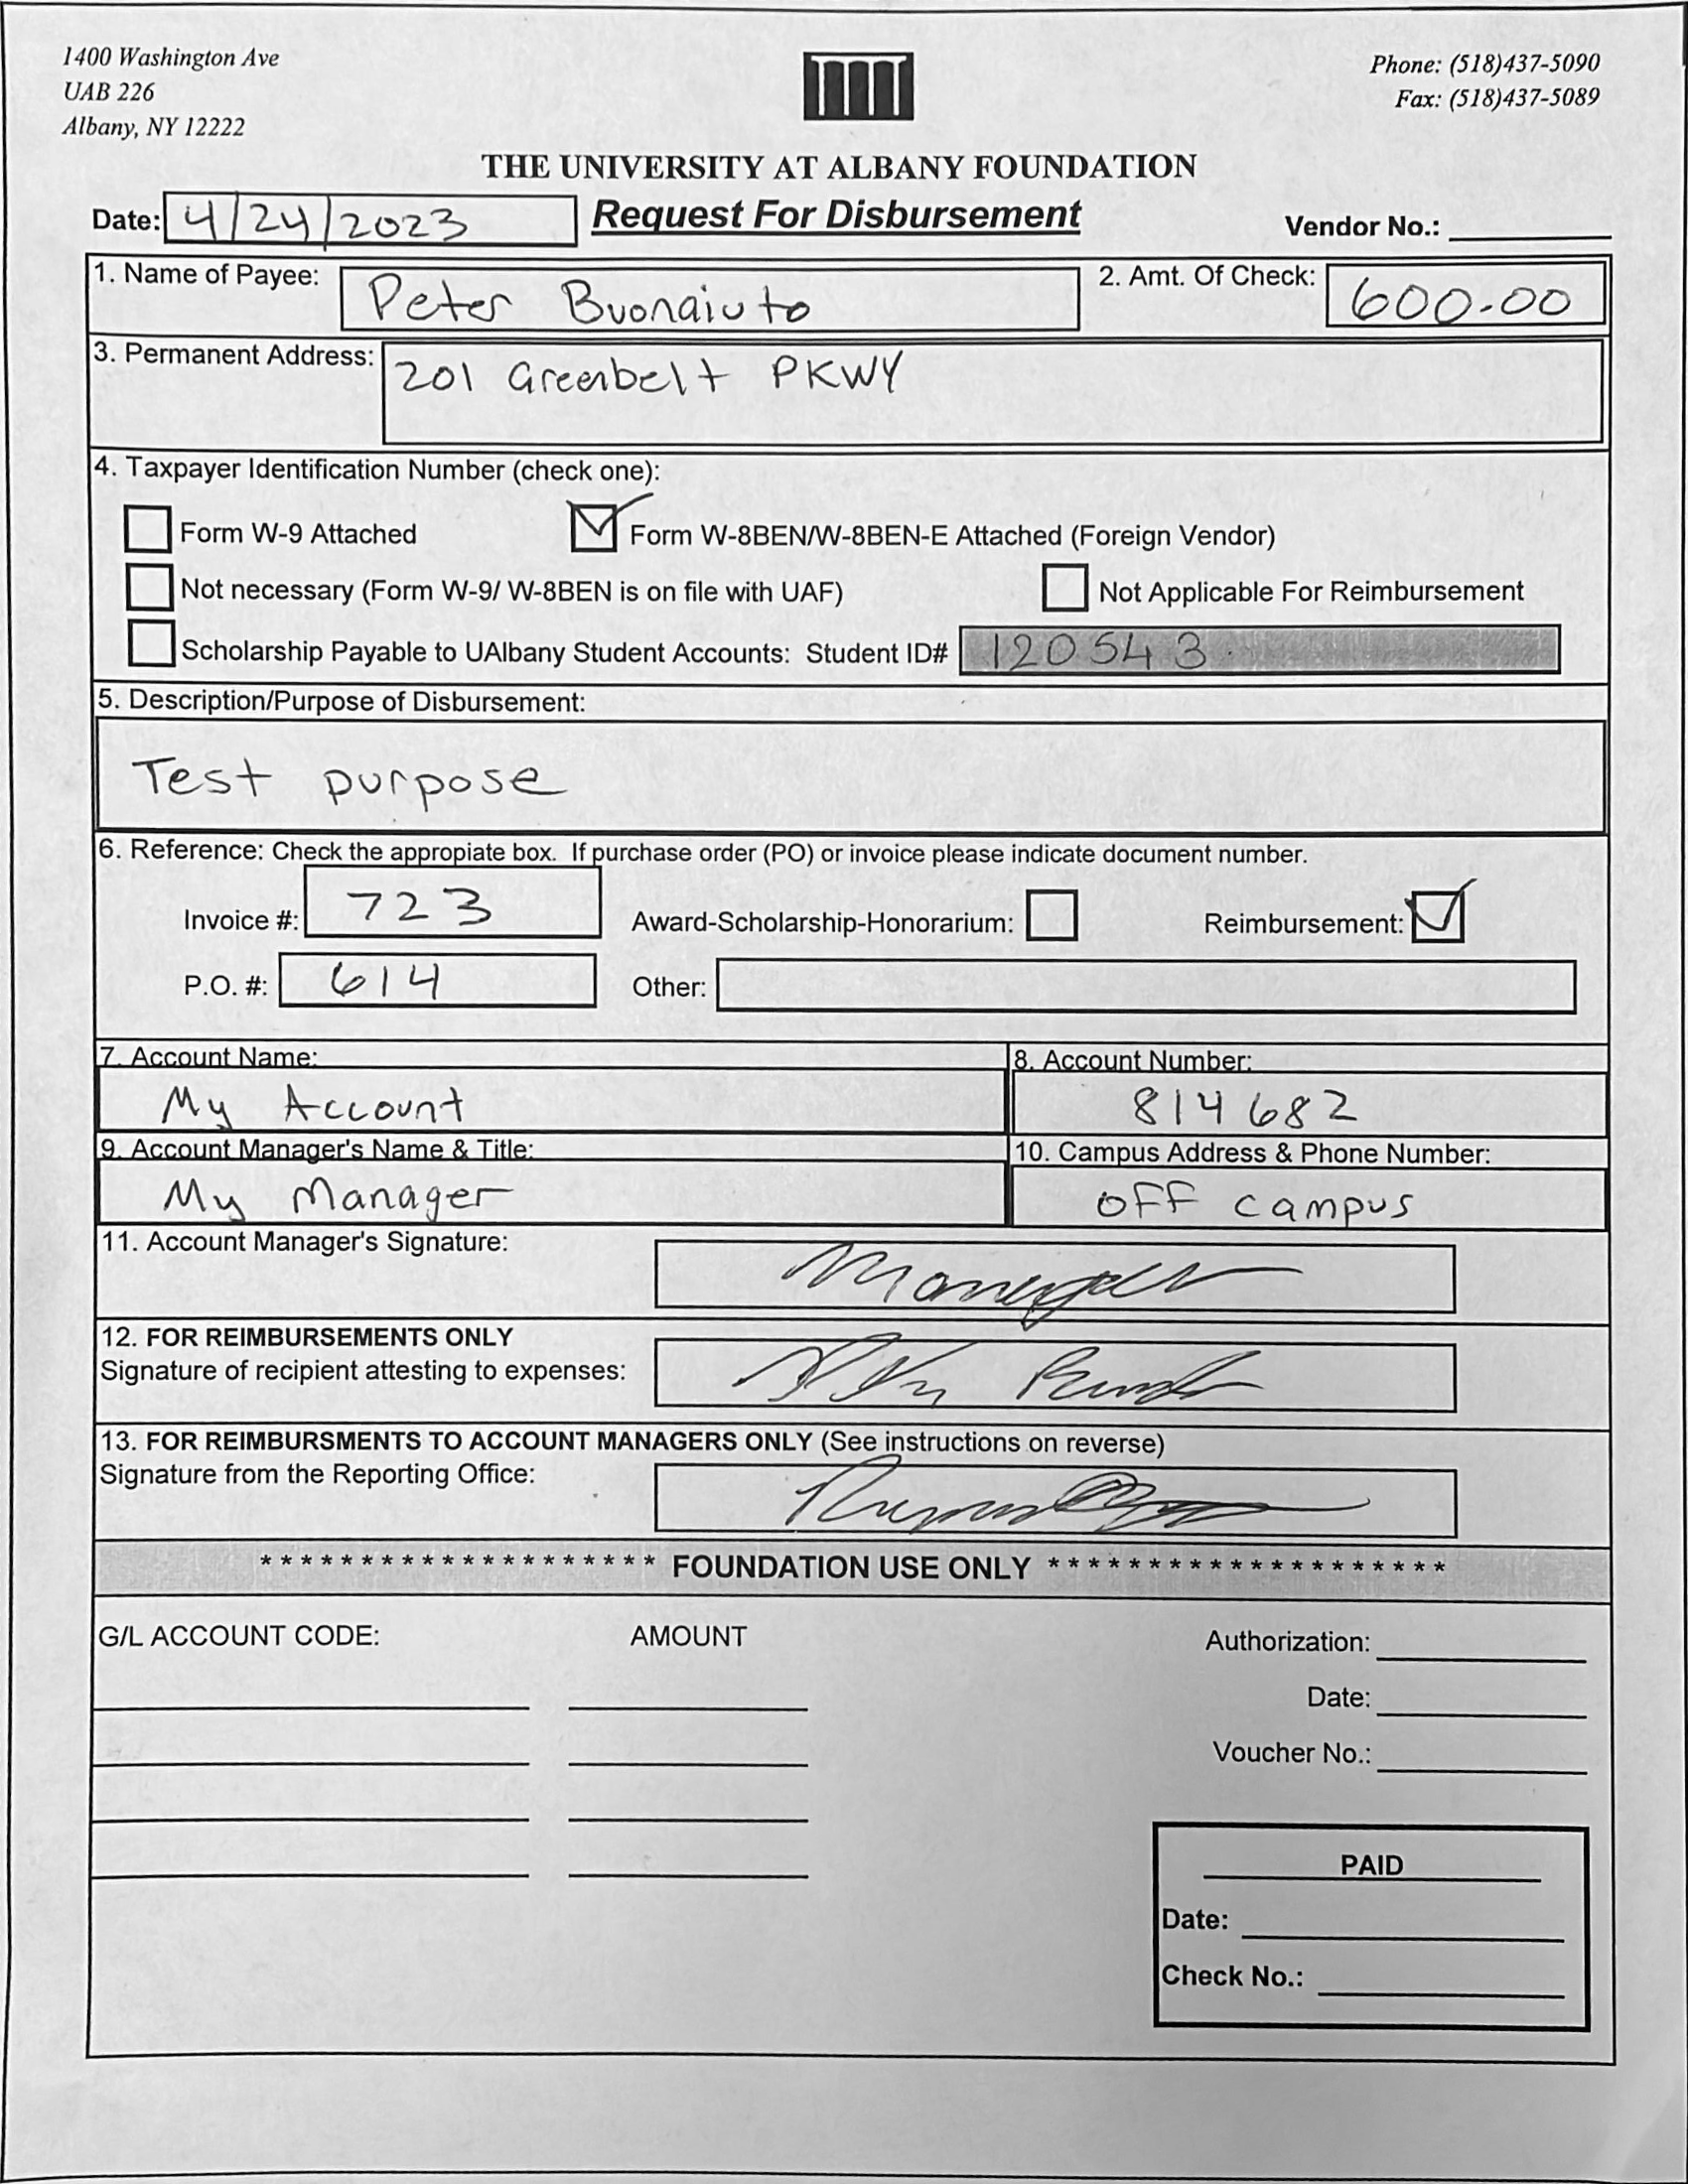 1400 Washington Ave
UAB 226
Albany, NY 12222
Phone: (518)437-5090
Fax: (518)437-5089
THE UNIVERSITY AT ALBANY FOUNDATION
Date: 4/24/2023 Request For Disbursement Vendor No.:
1. Name of Payee: Peter Buonaiuto 2. Amt. Of Check: 600.00
3. Permanent Address: 201 Greenbelt PKWY
4. Taxpayer Identification Number (check one):
Form W-9 Attached Form W-8BEN/W-8BEN-E Attached (Foreign Vendor)
Not necessary (Form W-9/ W-8BEN is on file with UAF) Not Applicable For Reimbursement
Scholarship Payable to UAlbany Student Accounts: Student ID# 120543
5. Description/Purpose of Disbursement:
Test purpose
6. Reference: Check the appropiate box. If purchase order (PO) or invoice please indicate document number.
Invoice #: 723 Award-Scholarship-Honorarium: Reimbursement:
P.O. #: 614 Other:
7. Account Name: 8. Account Number:
My Account 814682
9. Account Manager's Name & Title: 10. Campus Address & Phone Number:
My Manager off campus
11. Account Manager's Signature:
12. FOR REIMBURSEMENTS ONLY
Signature of recipient attesting to expenses:
13. FOR REIMBURSMENTS TO ACCOUNT MANAGERS ONLY (See instructions on reverse)
Signature from the Reporting Office:
******************** FOUNDATION USE ONLY ********************
G/L ACCOUNT CODE: AMOUNT Authorization:
Date:
Voucher No.:
PAID
Date:
Check No.: